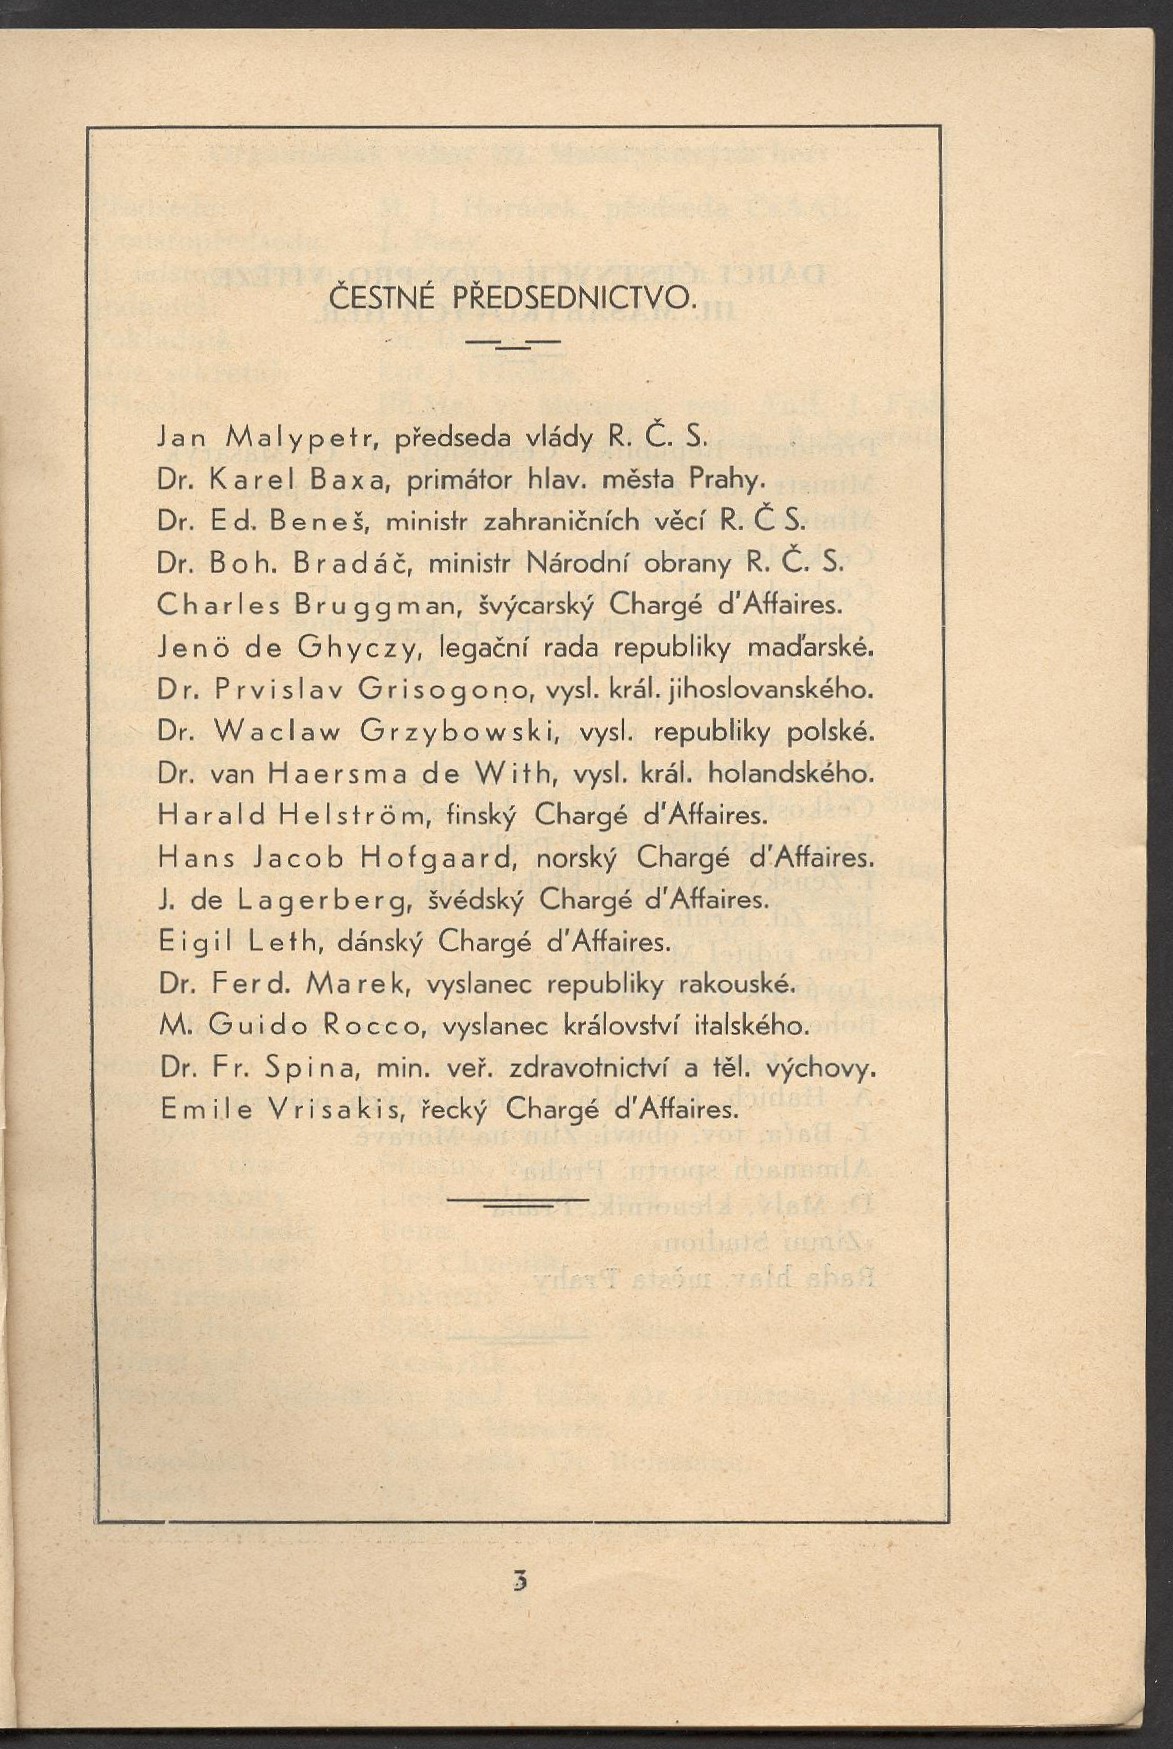 ČESTNÉ PŘEDSEDNICTVO.
Jan Malypetr, předseda vlády R. Č. S.
Dr. Karel Baxa, primátor hlav. města Prahy.
Dr. Ed. Beneš, ministr zahraničních věcí R. Č S.
Dr. Boh. Bradáč, ministr Národní obrany R. Č. S.
Charles Bruggman, švýcarský Chargé d'Affaires.
Jenö de Ghyczy, legační rada republiky maďarské.
Dr. Prvislav Grisogono, vysl. král. jihoslovanského.
Dr. Waclaw Grzybowski, vysl. republiky polské.
Dr. van Haersma de With, vysl. král. holandského.
Harald Helström, finský Chargé d'Affaires.
Hans Jacob Hofgaard, norský Chargé d'Affaires.
J. de Lagerberg, švédský Chargé d'Affaires.
Eigil Leth, dánský Chargé d'Affaires.
Dr. Ferd. Marek, vyslanec republiky rakouské.
M. Guido Rocco, vyslanec království italského.
Dr. Fr. Spina, min. veř. zdravotnictví a těl. výchovy.
Emile Vrisakis, řecký Chargé d'Affaires.
3